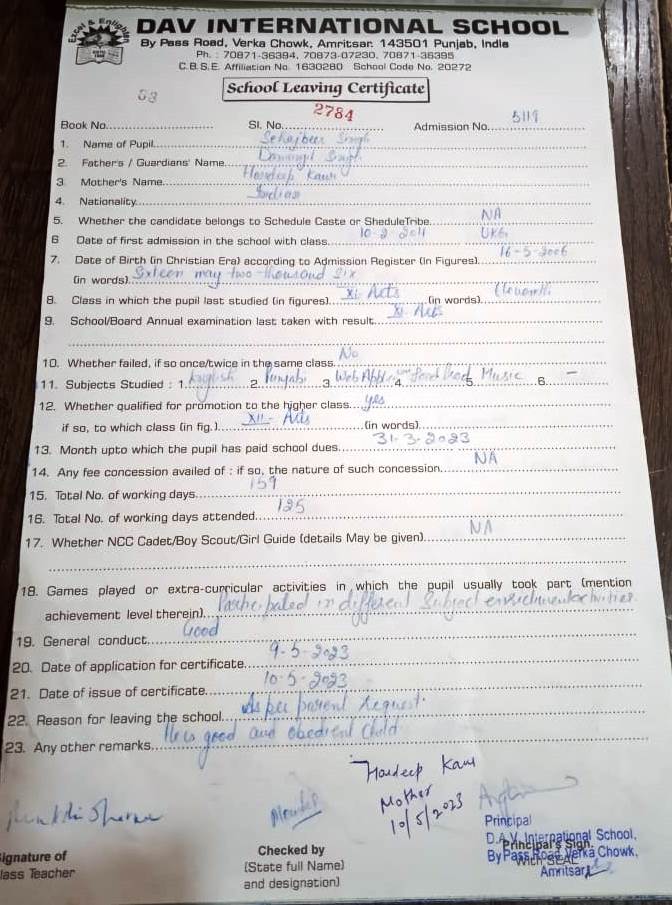 Excel & Enlighten
DAV INTERNATIONAL SCHOOL
By Pass Road, Verka Chowk, Amritsar. 143501 Punjab, India
Ph. : 70871-36394, 70873-07230, 70871-36395
C.B.S.E. Affiliation No. 1630280 School Code No. 20272
School Leaving Certificate
Book No. 63 Sl. No. 2784 Admission No. 5119
1. Name of Pupil Sehajbeer Singh
2. Father's / Guardians' Name Singh
3. Mother's Name Hardeep Kaur
4. Nationality Indian
5. Whether the candidate belongs to Schedule Caste or SheduleTribe NA
6 Date of first admission in the school with class 10-2-2011 UKG
7. Date of Birth (in Christian Era) according to Admission Register (in Figures) 16-5-2006
(in words) Sixteen may two thousand Six
8. Class in which the pupil last studied (in figures) XI Arts (in words) Eleventh
9. School/Board Annual examination last taken with result XI Arts
10. Whether failed, if so once/twice in the same class No
11. Subjects Studied : 1. English 2. Punjabi 3. Web App 4. 5. Music 6. –
12. Whether qualified for promotion to the higher class yes
if so, to which class (in fig.) XII - Arts (in words)
13. Month upto which the pupil has paid school dues 31-3-2023
14. Any fee concession availed of : if so, the nature of such concession NA
15. Total No. of working days 159
16. Total No. of working days attended 125
17. Whether NCC Cadet/Boy Scout/Girl Guide (details May be given) NA
18. Games played or extra-curricular activities in which the pupil usually took part (mention
achievement level therein) Participated in different Subject enrichment activities.
19. General conduct Good
20. Date of application for certificate 9-5-2023
21. Date of issue of certificate 10-5-2023
22. Reason for leaving the school As per parent request.
23. Any other remarks He is good and obedient child
Hardeep Kaur
Mother
10/5/2023
Sharma
Principal
D.A.V. International School,
Principal's Sign.
By Pass Road, Verka Chowk,
With SEAL
Amritsar
Signature of
Class Teacher
Checked by
(State full Name)
and designation)